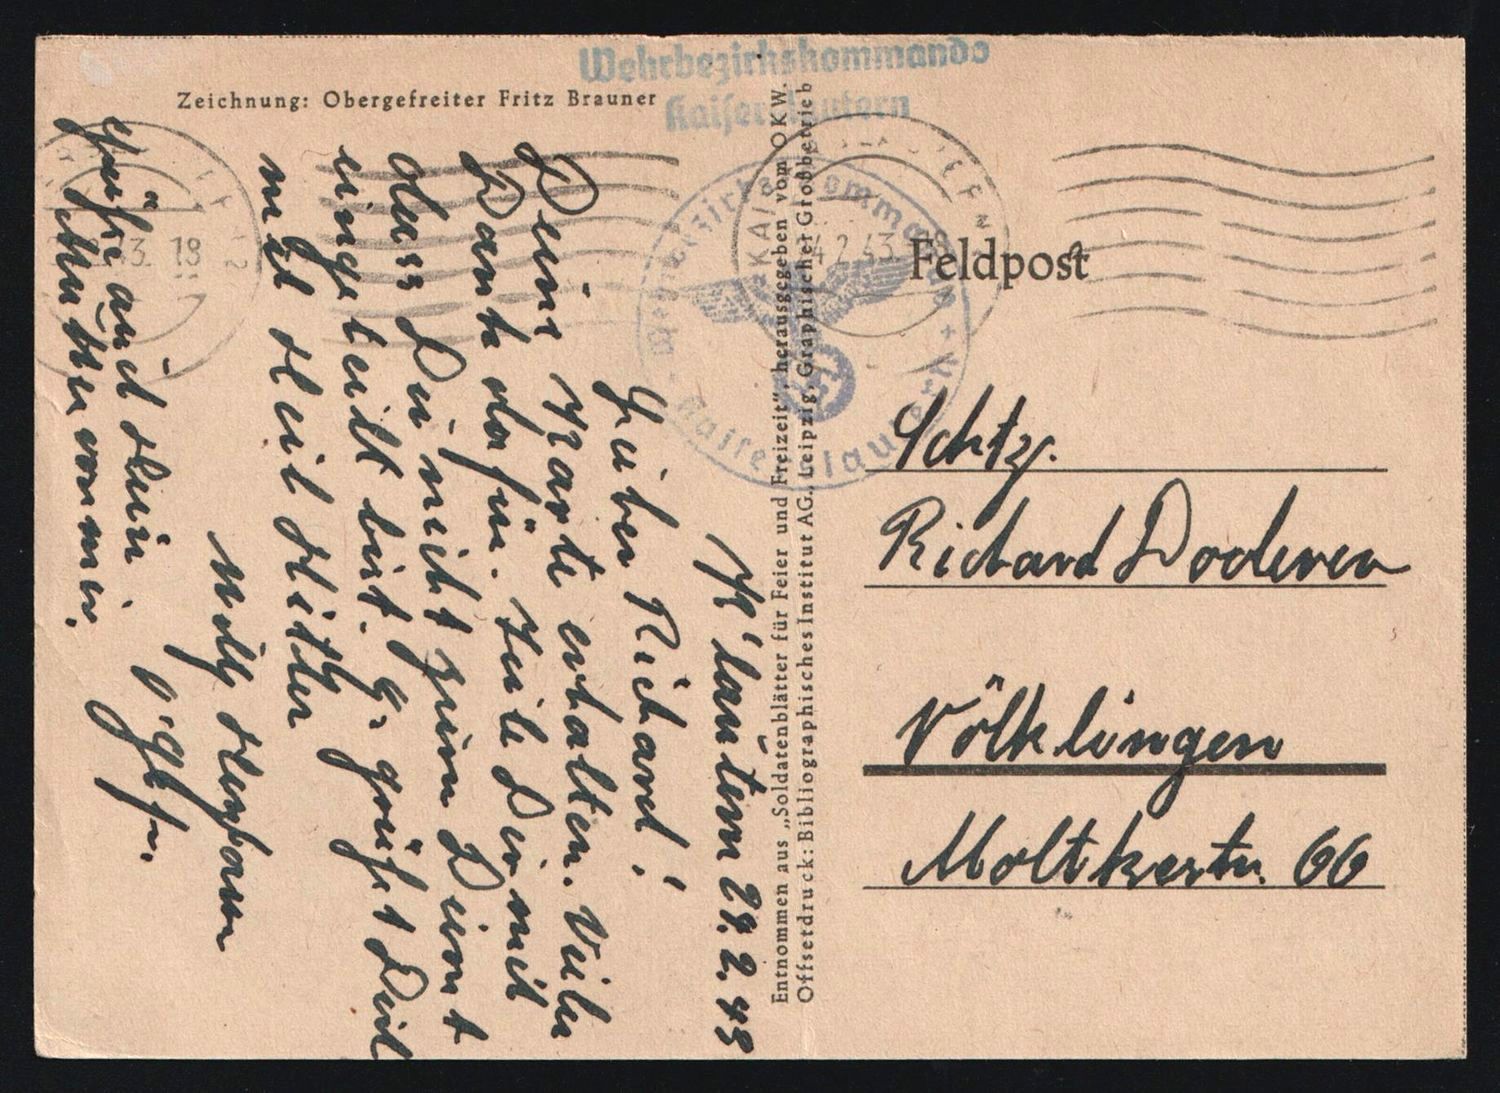 Wehrbezirkskommando
Kaiserslautern
Zeichnung: Obergefreiter Fritz Brauner
Feldpost
Schtz.
Richard Doderer
Völklingen
Moltkestr. 66
Entnommen aus „Soldatenblätter für Feier und Freizeit", herausgegeben vom OKW.
Offsetdruck: Bibliographisches Institut AG., Leipzig, Graphischer Großbetrieb
K'lautern 24.2.43
Lieber Richard!
Deine Karte erhalten. Vielen
Dank dafür. Teile Dir mit
dass Du nicht zum Dienst
eingeteilt bist. Es grüßt Dich
mit Heil Hitler
Willy Hermann
Ogfr.
Grüße auch Deine
Mutter von mir.